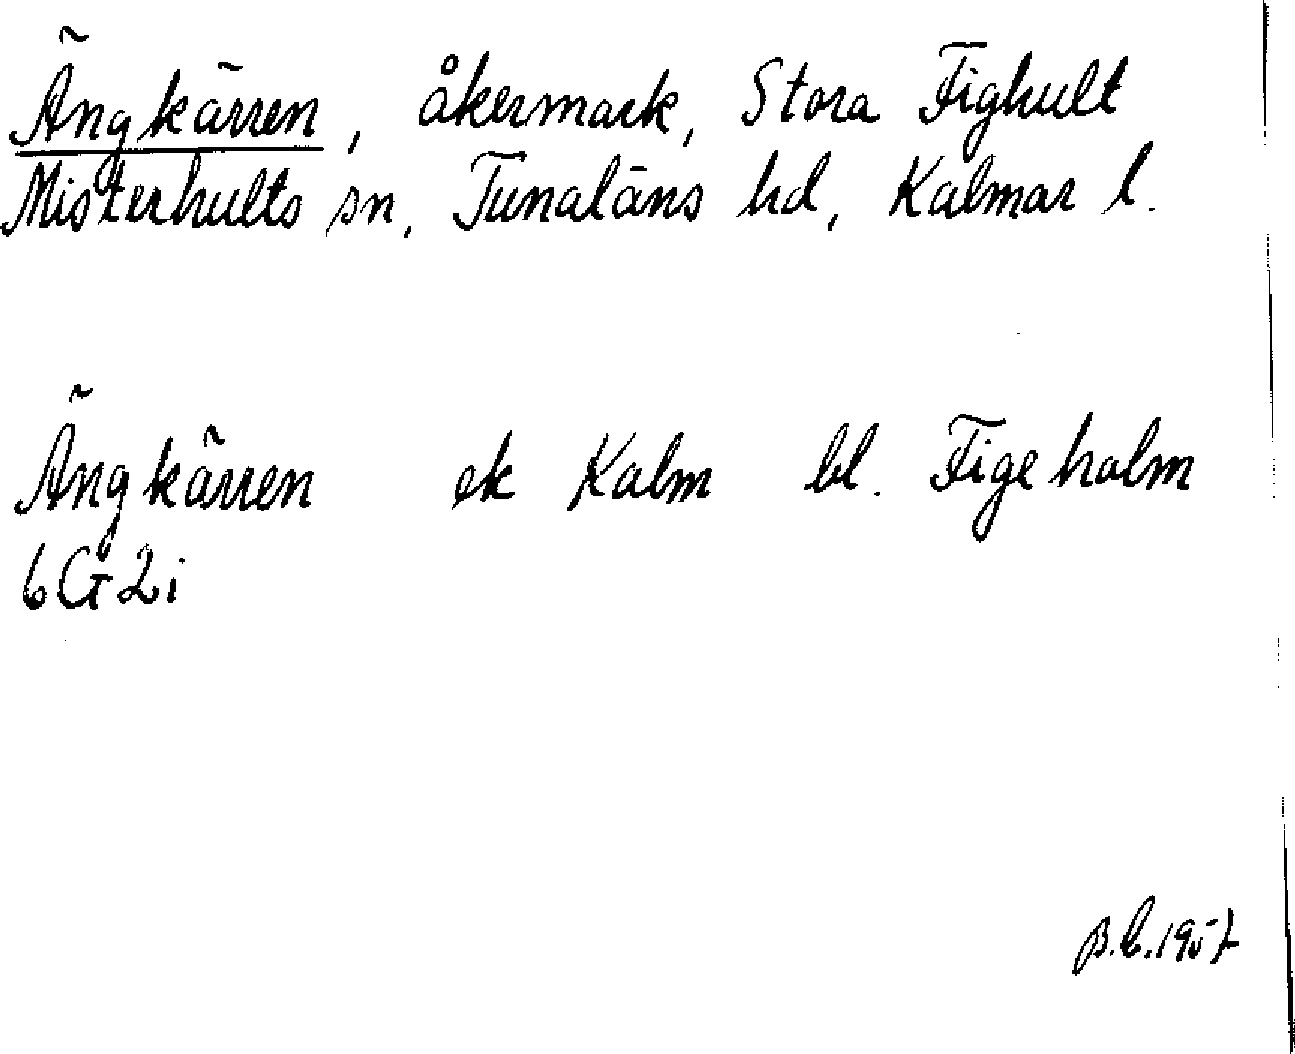 Ängkärren, åkermark, Stora Fighult
Misterhults sn, Tunaläns hd, Kalmar l.
Ängkärren ek Kalm bl. Figeholm
6G2i
B.C. 1957